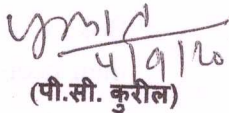 4/9/20
(पी.सी. कुरील)